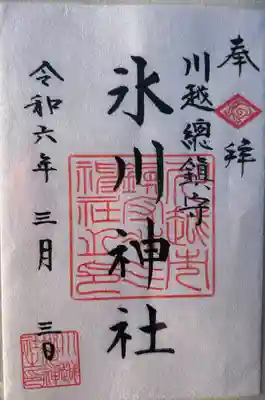 奉拝
川越總鎮守
氷川神社
令和六年三月三日